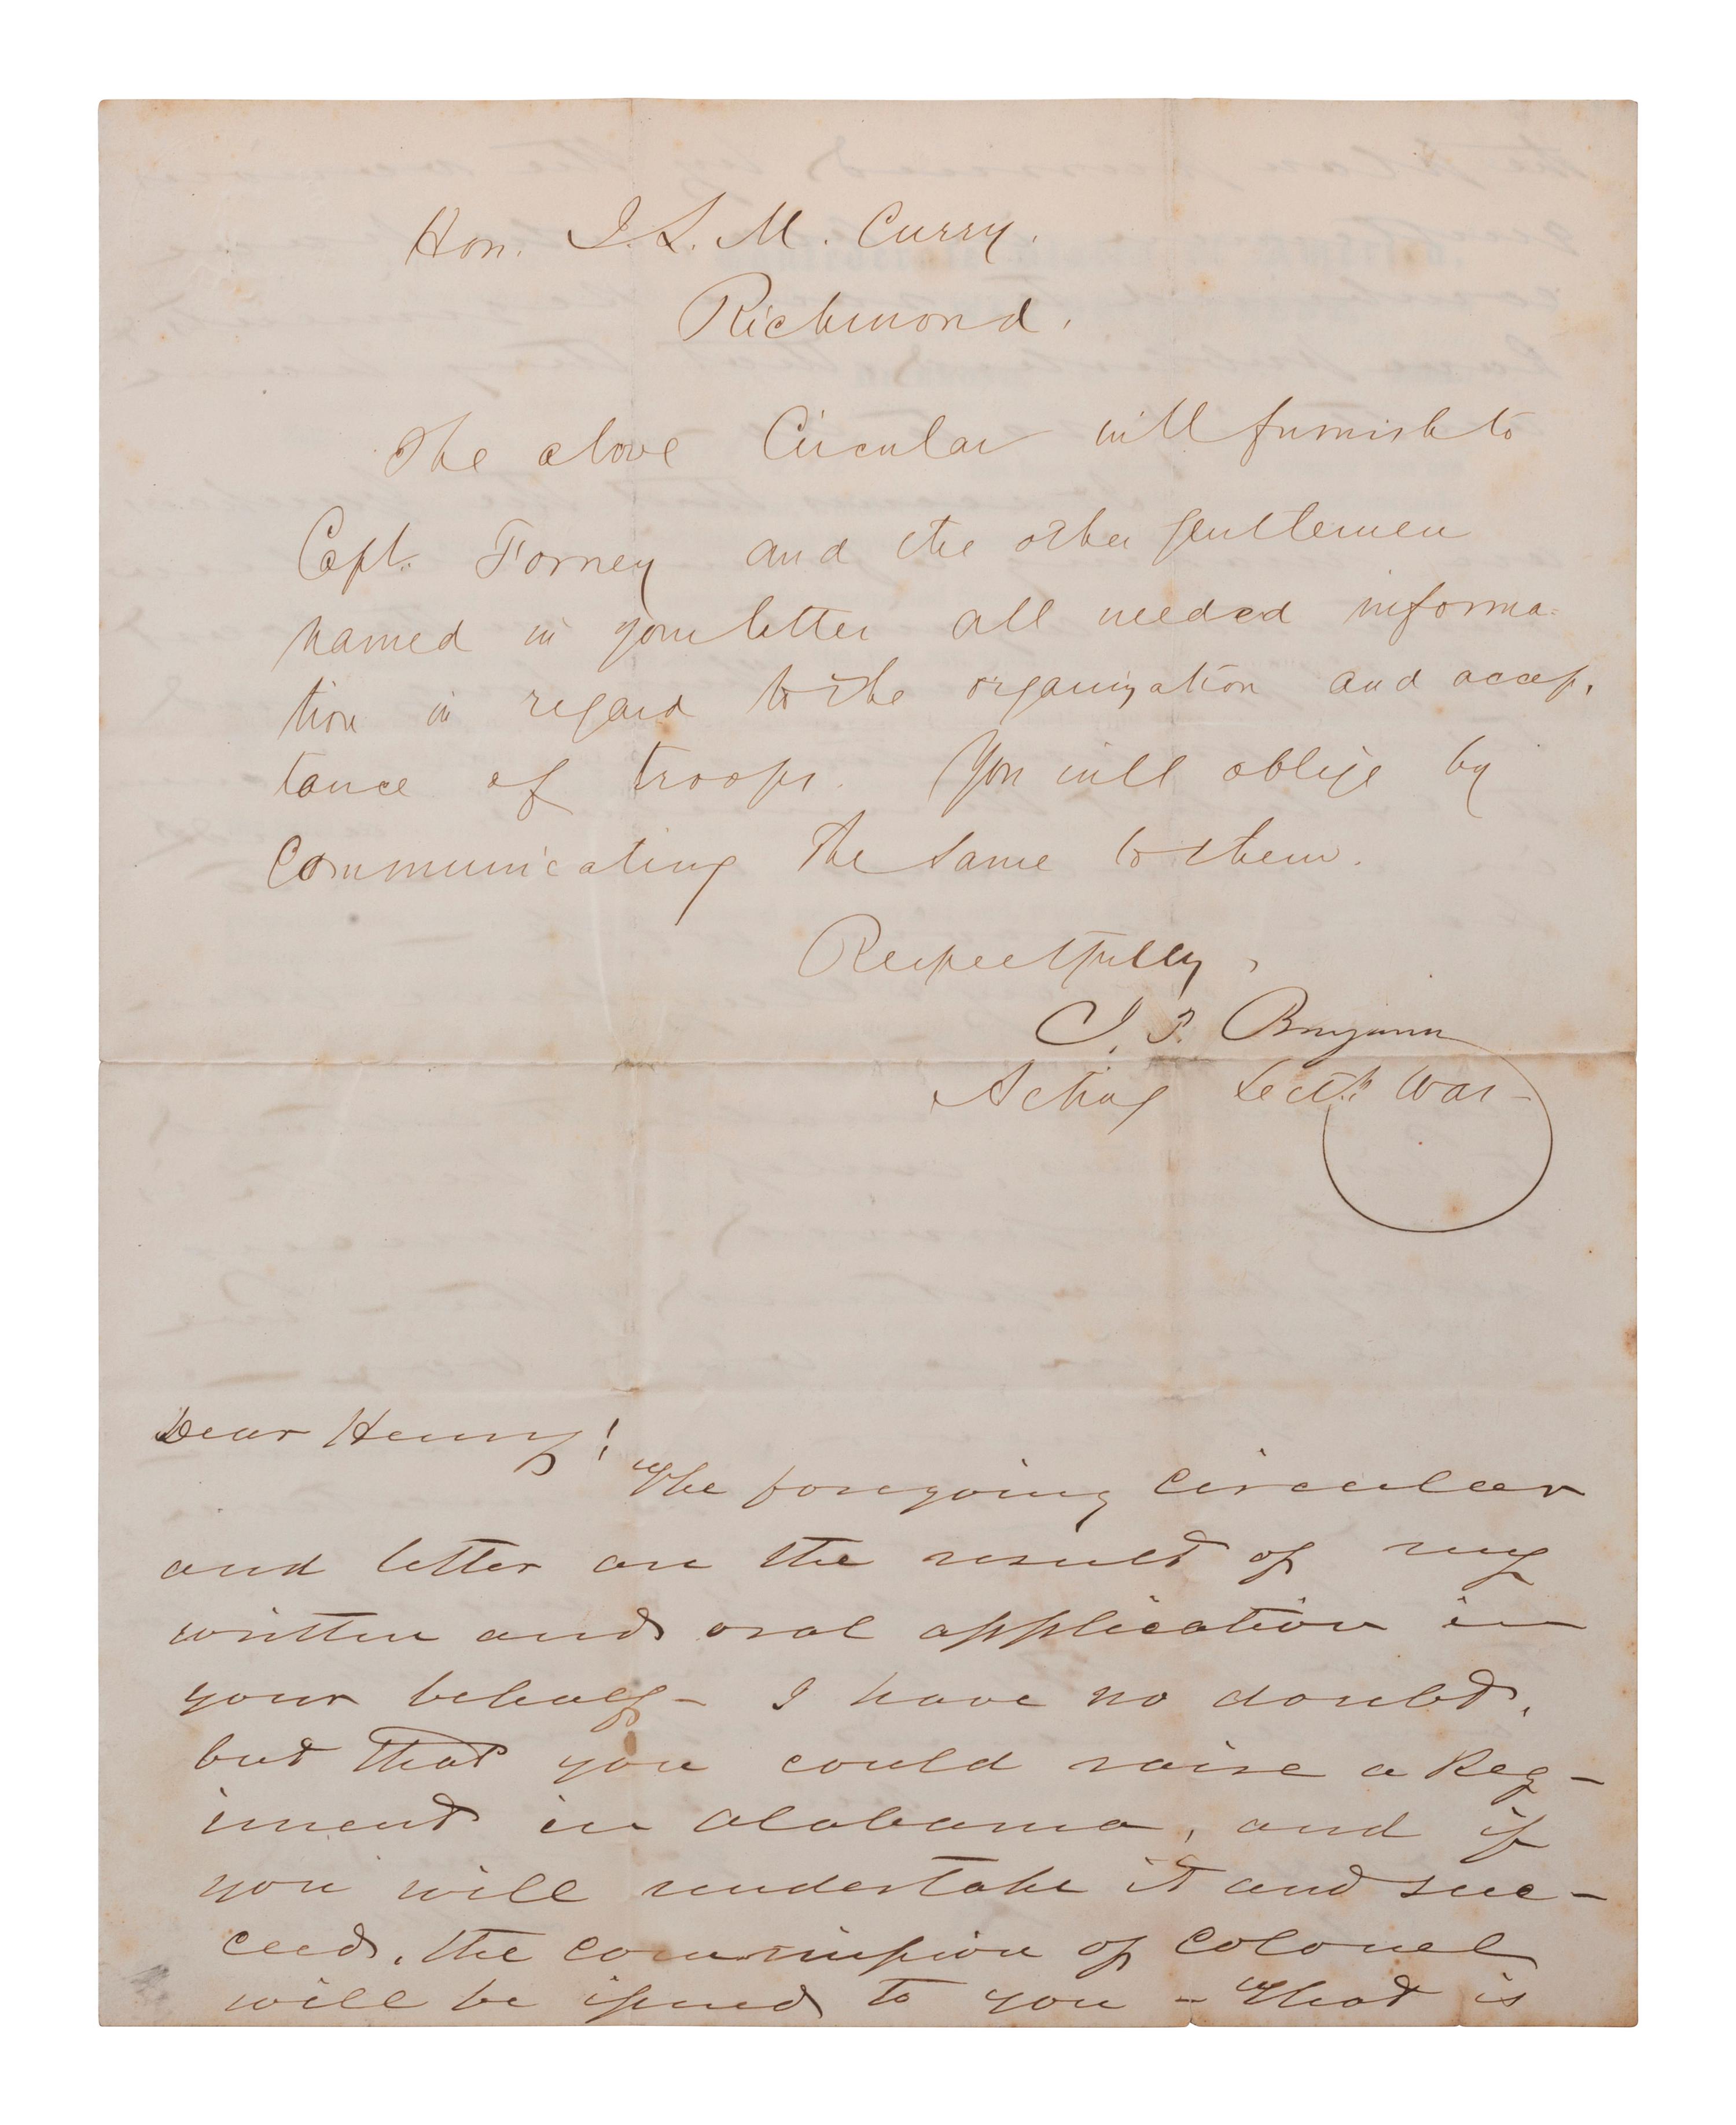 Hon. J. L. M. Curry.
Richmond.
The above Circular will furnish to
Capt. Forney and the other gentlemen
named in your letter all needed informa-
tion in regard to the organization and accep-
tance of troops. You will oblige by
Communicating the same to them.
Respectfully,
J. P. Benjamin
Acting Secty War
Dear Henry!
The foregoing circular
and letter are the result of my
written and oral application in
your behalf - I have no doubt,
but that you could raise a Reg-
iment in Alabama, and if
you will undertake it and suc-
ceed, the commission of Colonel
will be issued to you - That is